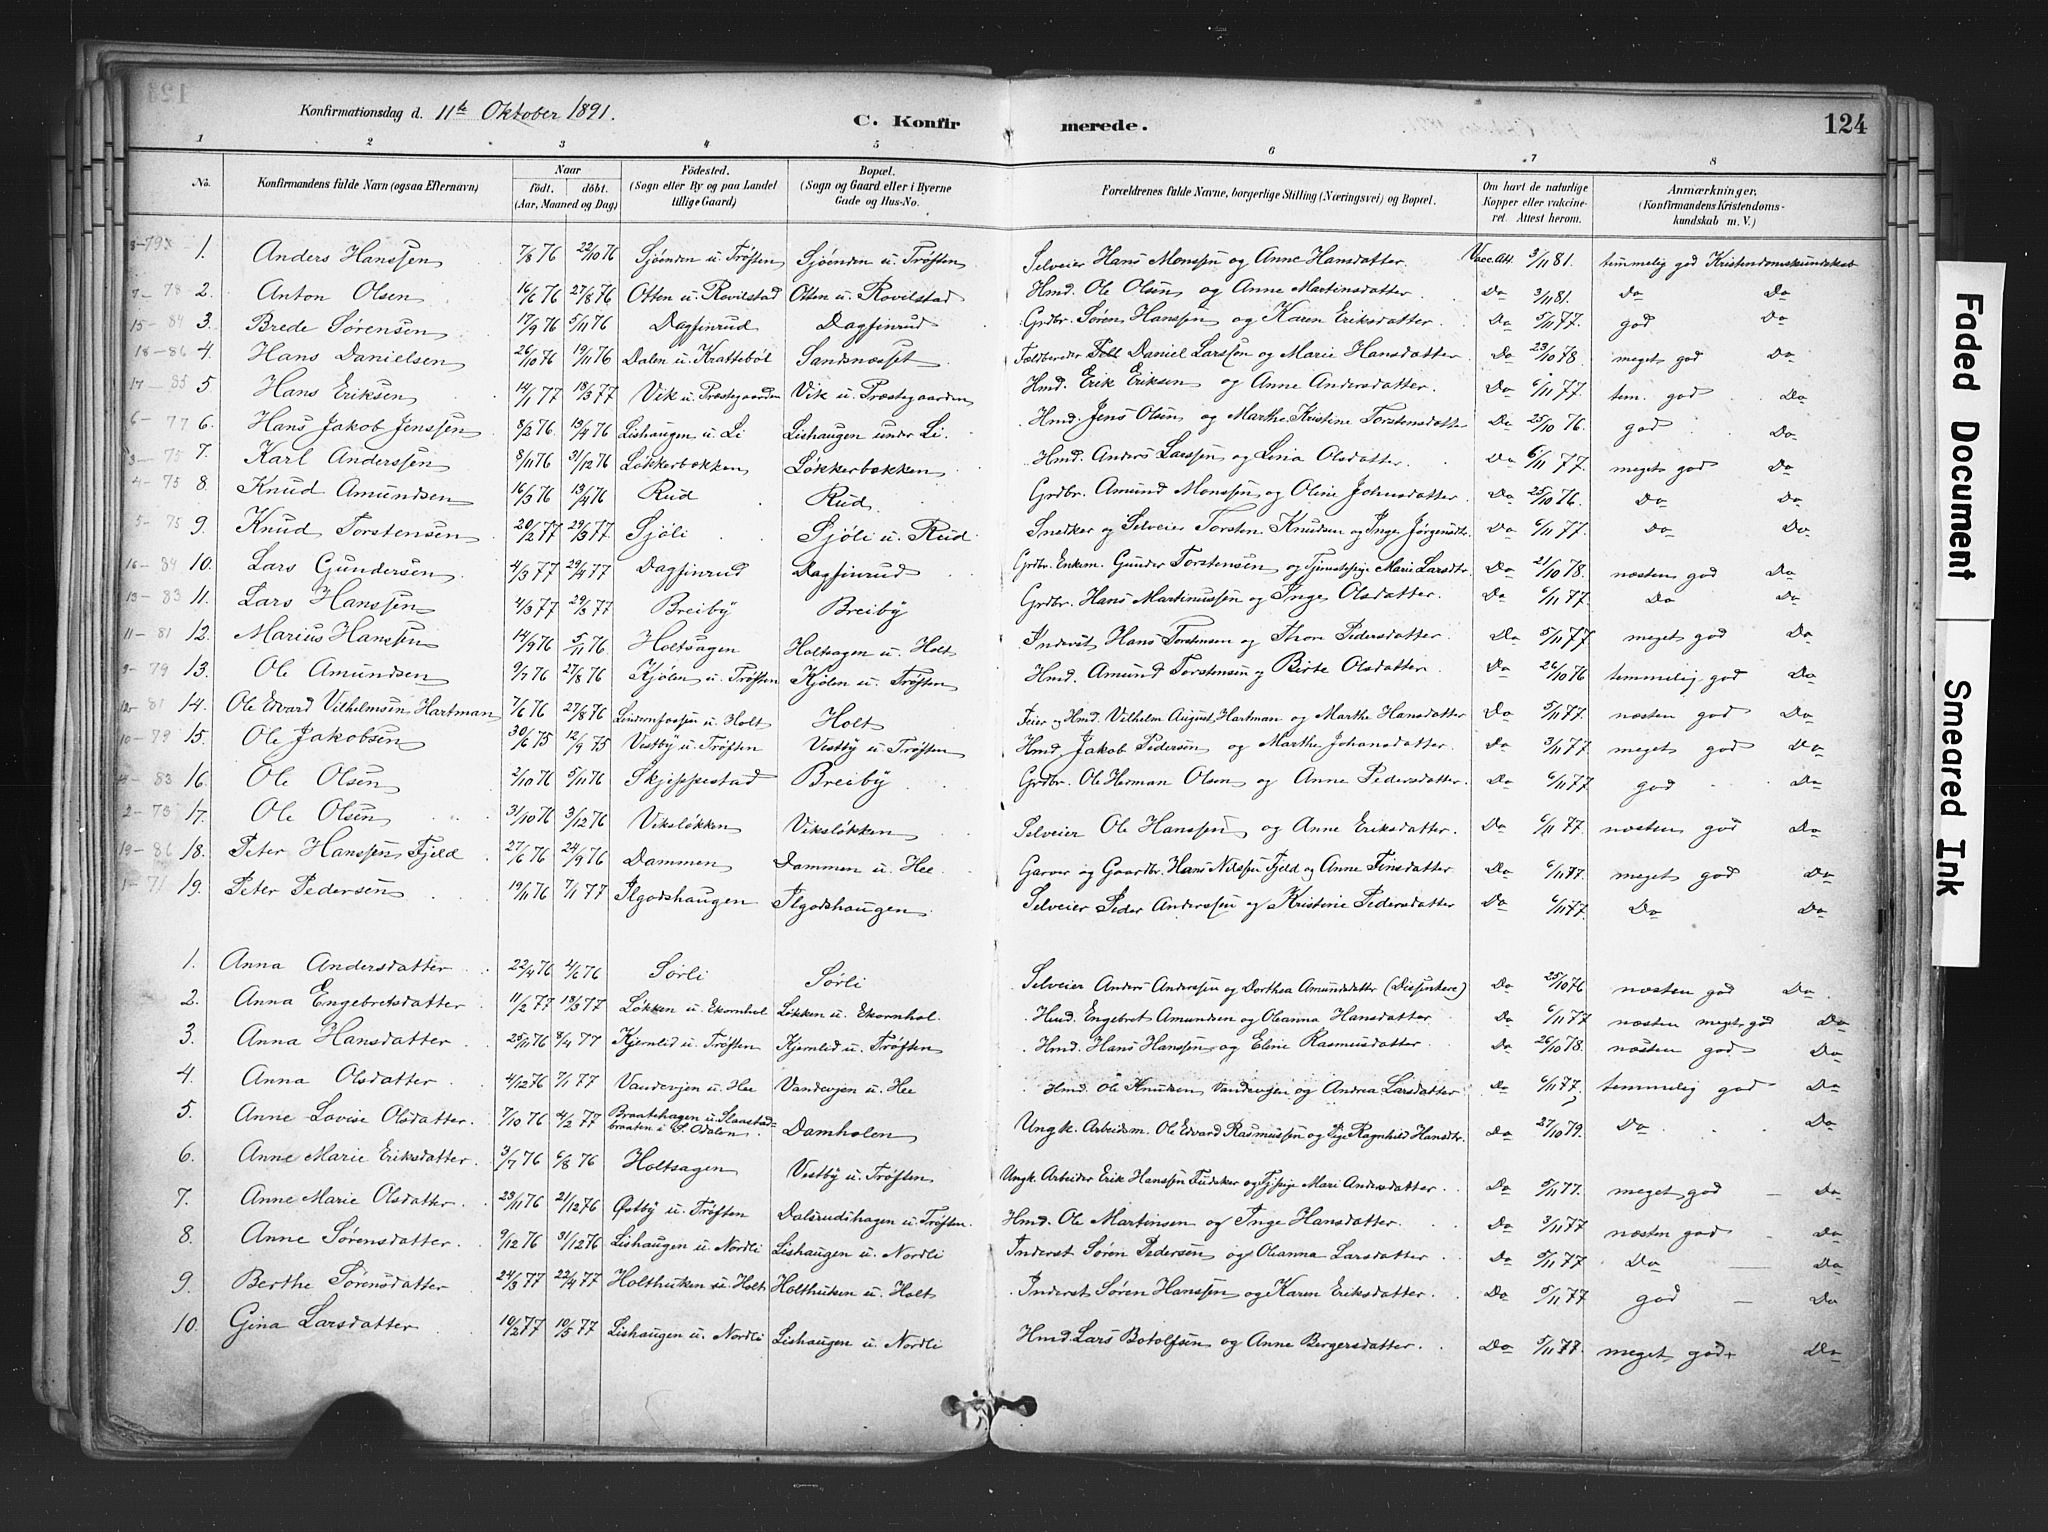 Konfirmationsdag d. 11te Oktober 1891.
C. Konfirmerede.
124
1 2 3 4 5 6 7 8
No. Konfirmandens fulde Navn (ogsaa Efternavn) Naar født. døbt. (Aar, Maaned og Dag) Fødested. (Sogn eller By og paa Landet tillige Gaard) Bopæl. (Sogn og Gaard eller i Byerne Gade og Hus-No. Forældrenes fulde Navne, borgerlige Stilling (Næringsvei) og Bopæl. Om havt de naturlige Kopper eller vakcineret. Attest herom. Anmærkninger, (Konfirmandens Kristendomskundskab m. V.)
1. Anders Hanssen 7/8 76 22/10 76 Sjøenden u. Trøften Sjøenden u. Trøften Selveier Hans Monssen og Anne Hansdatter. Vacc. Att. 3/11 81. temmelig god Kristendomskundskab
2. Anton Olsen 16/6 76 27/8 76 Otten u. Rovilstad Otten u. Rovilstad Hmd. Ole Olsen og Anne Martinsdatter. Do 3/11 81. Do Do
3. Brede Sørensen 17/9 76 5/11 76 Dagfinrud Dagfinrud Grdbr. Søren Hanssen og Karen Eriksdatter. Do 5/11 77. god Do
4. Hans Danielsen 26/10 76 19/11 76 Dalen u. Krattebøl Sandnæsset Daniel Larssen og Marie Hansdatter Do 23/10 78. meget god Do
5. Hans Eriksen 14/1 77 18/3 77 Vik u. Præstegaarden Vik u. Præstegaarden Hmd. Erik Eriksen og Anne Andersdatter. Do 6/11 77. tem. god Do
6. Hans Jakob Jenssen 8/2 76 19/4 76 Lishaugen u. Li Lishaugen under Li. Hmd. Jens Olsen og Marthe Kristine Torstensdatter Do 25/10 76. god Do
7. Karl Anderssen 8/11 76 31/12 76 Løkkerbakken Løkkerbakken Hmd. Anders Larssen og Lina Olsdatter. Do 6/11 77. meget god Do
8. Knud Amundsen 16/3 76 13/4 76 Rud Rud Grdbr. Amund Monssen og Oline Johnsdatter. Do 25/10 76. Do Do
9. Knud Torstensen 20/2 77 29/3 77 Sjøli Sjøli u. Rud Snedker og Selveier Torsten Knudsen og Inge Jørgensdtr. Do 6/11 77. Do Do
10. Lars Gundersen 4/3 77 29/4 77 Dagfinrud Dagfinrud Grdbr. Enkm. Gunder Torstensen og Tjenestepige Marie Larsdtr. Do 21/10 78. næsten god Do
11. Lars Hanssen 4/3 77 29/3 77 Breiby Breiby Grdbr. Hans Martinussen og Inge Olsdatter. Do 6/11 77. Do Do
12. Marius Hanssen 14/9 76 5/11 76 Holtsagen Holtsagen u. Holt Inderst Hans Torstensen og Thore Pedersdatter Do 5/11 77 meget god Do
13. Ole Amundsen 9/7 76 27/8 76 Kjølen u. Trøften Kjølen u. Trøften Hmd. Amund Torstensen og Birte Olsdatter. Do 26/10 76 temmelig god Do
14. Ole Edvard Vilhelmsen Hartman 7/6 76 27/8 76 Lundernfossen u. Holt Holt Feier og Hmd. Vilhelm August Hartman og Marthe Hansdatter Do 5/11 77. næsten god Do
15. Ole Jakobsen 30/6 75 12/9 75 Vestby u. Trøften Vestby u. Trøften Hmd. Jakob Pedersen og Marthe Johansdatter Do 3/11 77 meget god Do
16. Ole Olsen 2/10 76 5/11 76 Skjeppestad Breiby Grdbr. Ole Herman Olsen og Anne Pedersdatter Do 6/11 77 god Do
17. Ole Olsen 31/10 76 3/12 76 Viksløkken Viksløkken Selveier Ole Hanssen og Anne Eriksdatter. Do 6/11 77. næsten god Do
18. Peter Hanssen Fjeld 27/6 76 24/9 76 Dammen Dammen u. Hee Garver og Gaardbr. Hans Nilssen Fjeld og Anne Finsdatter. Do 6/11 77. meget god Do
19. Peter Pedersen 19/11 76 7/1 77 Ilgodshaugen Ilgodshaugen Selveier Peder Anderssen og Kristine Pedersdatter Do 6/11 77. Do Do
1. Anna Andersdatter 22/4 76 4/6 76 Sørli Sørli Selveier Anders Anderssen og Dorthea Amundsdatter (Dissentere) Do 25/10 76 næsten god Do
2. Anna Engebretsdatter 11/2 77 18/3 77 Løkken u. Ekornhol Løkken u. Ekornhol. Hmd. Engebret Amundsen og Oleanna Hansdatter Do 6/11 77 næsten meget god Do
3. Anna Hansdatter 25/11 76 8/4 77 Kjernlid u. Trøften Kjernlid u. Trøften Hmd. Hans Hanssen og Eline Rasmusdatter. Do 26/10 78. næsten god Do
4. Anna Olsdatter 4/12 76 7/1 77 Vandevjen u. Hee Vandevjen u. Hee Hmd. Ole Knudsen Vandevjen og Andrea Larsdatter Do 6/11 77. temmelig god Do
5. Anne Lovise Olsdatter 7/10 76 4/2 77 Braatehagen u. Slaastadbraaten i S. Odalen. Damholen Ungk. Arbeidsm. Ole Edvard Rasmussen og Pige Ragnhild Hansdtr. Do 27/10 79. Do Do
6. Anne Marie Eriksdatter 3/7 76 6/8 76 Holtsagen Vestby u. Trøften Ungk. Arbeider Erik Hanssen og Marie Andersdatter. Do 5/11 77. meget god Do
7. Anne Marie Olsdatter 23/11 76 21/12 76 Østby u. Trøften Dalsrudshagen u. Trøften. Hmd. Ole Martinsen og Inge Hansdatter. Do 3/11 77 næsten god Do
8. Anne Sørensdatter 9/12 76 31/12 76 Lishaugen u. Nordli Lishaugen u. Nordli Inderst Søren Pedersen og Oleanna Larsdatter Do 5/11 77 Do Do
9. Berthe Sørensdatter 24/3 77 22/4 77 Holthuken u. Holt Holthuken u. Holt Inderst Søren Hanssen og Karen Eriksdatter. Do 5/11 77 god Do
10. Gina Larsdatter 19/2 77 10/5 77 Lishaugen u. Nordli Lishaugen u. Nordli Hmd. Lars Botolfsen og Anne Bergersdatter. Do 5/11 77. meget god Do
Faded Document
Smeared Ink